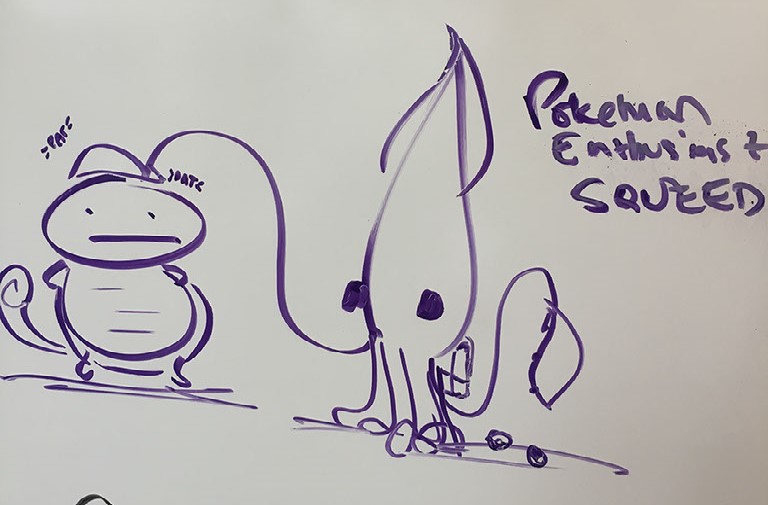 =PAT=
=PAT=
Pokeman
Enthusiast
SQUEED